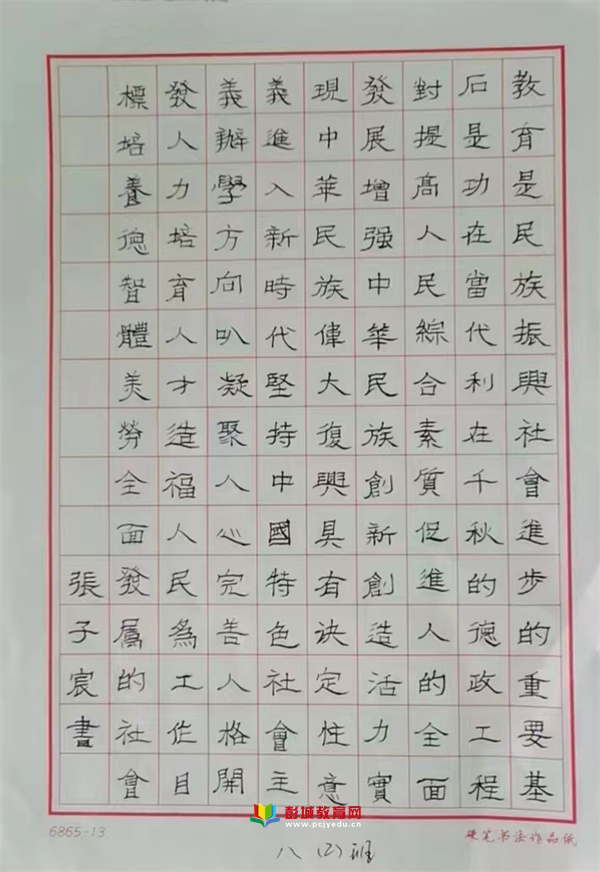 教育是民族振興社會進步的重要基
石是功在當代利在千秋的德政工程
對提高人民綜合素質促進人的全面
發展增强中華民族創新創造活力實
現中華民族偉大復興具有决定性意
義進入新時代堅持中國特色社會主
義辦學方向叭凝聚人心完善人格開
發人力培育人才造福人民為工作目
標培養德智體美勞全面發展的社會
張子宸書
彭城教育网
www.pcjyedu.cn
6865-13
硬笔书法作品纸
八(2)班